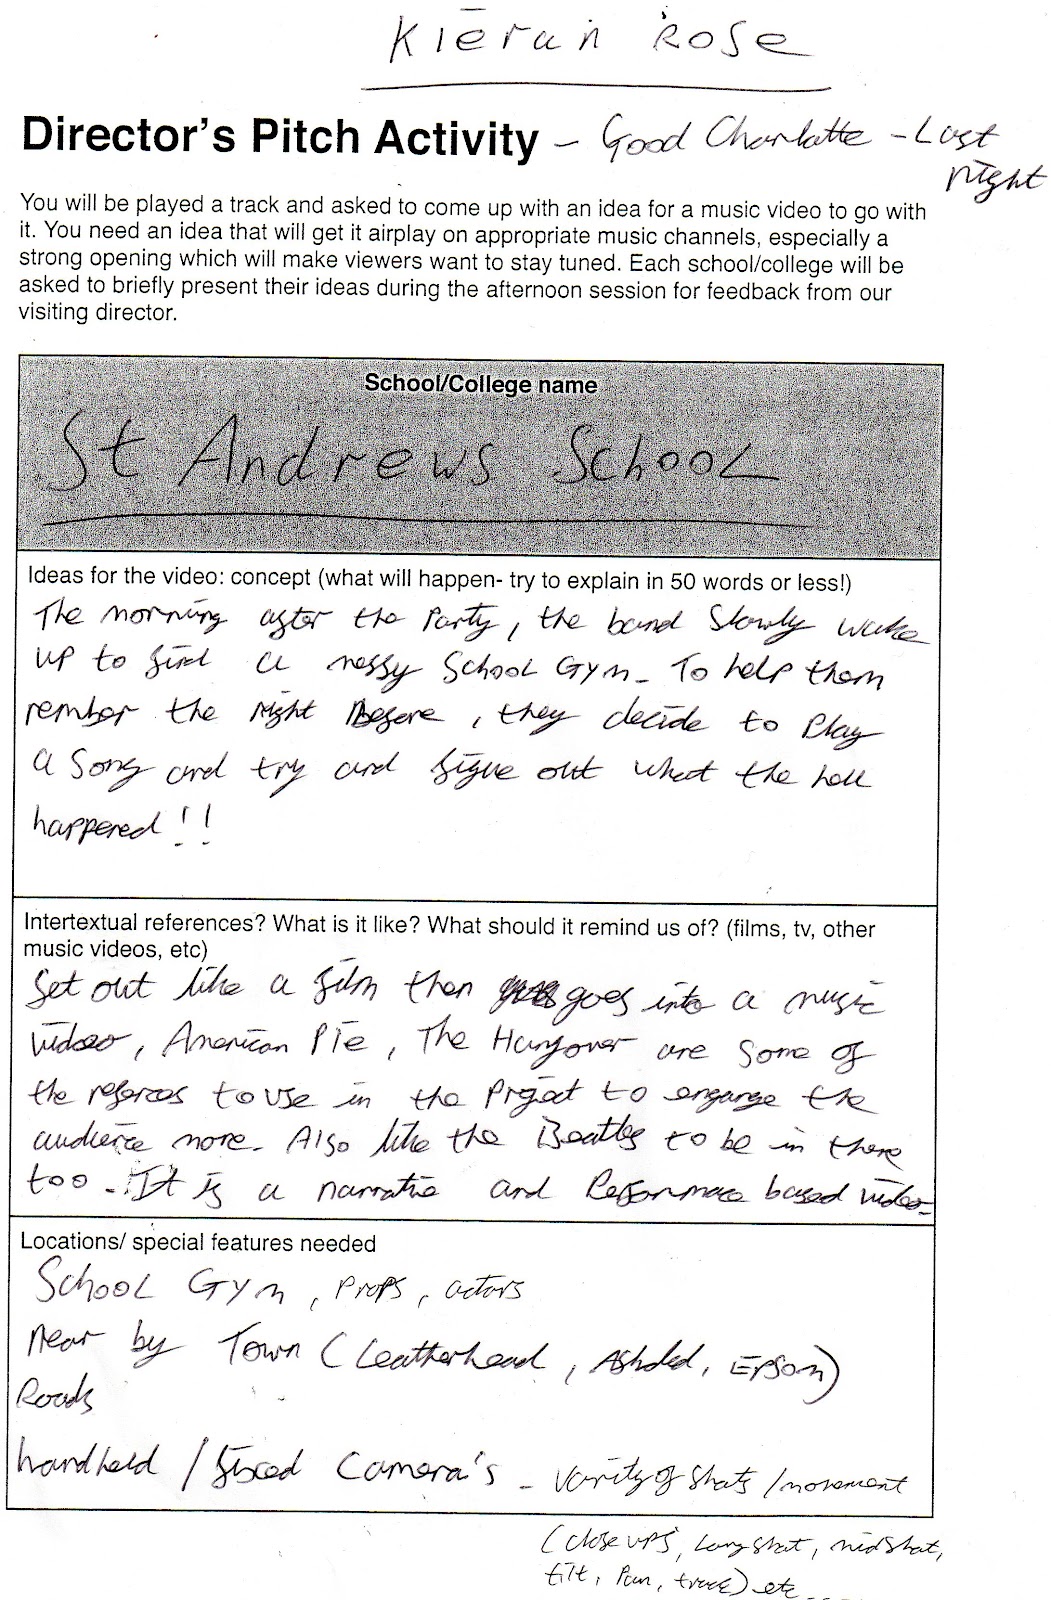 Kieran Rose
Director's Pitch Activity – Good Charlotte – Last
night
You will be played a track and asked to come up with an idea for a music video to go with
it. You need an idea that will get it airplay on appropriate music channels, especially a
strong opening which will make viewers want to stay tuned. Each school/college will be
asked to briefly present their ideas during the afternoon session for feedback from our
visiting director.
School/College name
St Andrews School
Ideas for the video: concept (what will happen- try to explain in 50 words or less!)
The morning after the Party, the band Slowly wake
up to find a messy School Gym. To help them
rember the night Before, they decide to Play
a Song and try and figue out what the hell
happened!!
Intertextual references? What is it like? What should it remind us of? (films, tv, other
music videos, etc)
Set out like a film then goes into a music
video, American Pie, The Hangover are some of
the referces to use in the Project to engange the
audience more. Also like the Beatles to be in there
too. It is a narrative and Performace based video.
Locations/ special features needed
School Gym, Props, actors
Near by Town (Leatherhead, Ashded, Epsom)
Roads
handheld / fixed Camera's - Varity of Shots / movement
(close ups, Long Shot, mid Shot,
tilt, Pan, track) etc.....